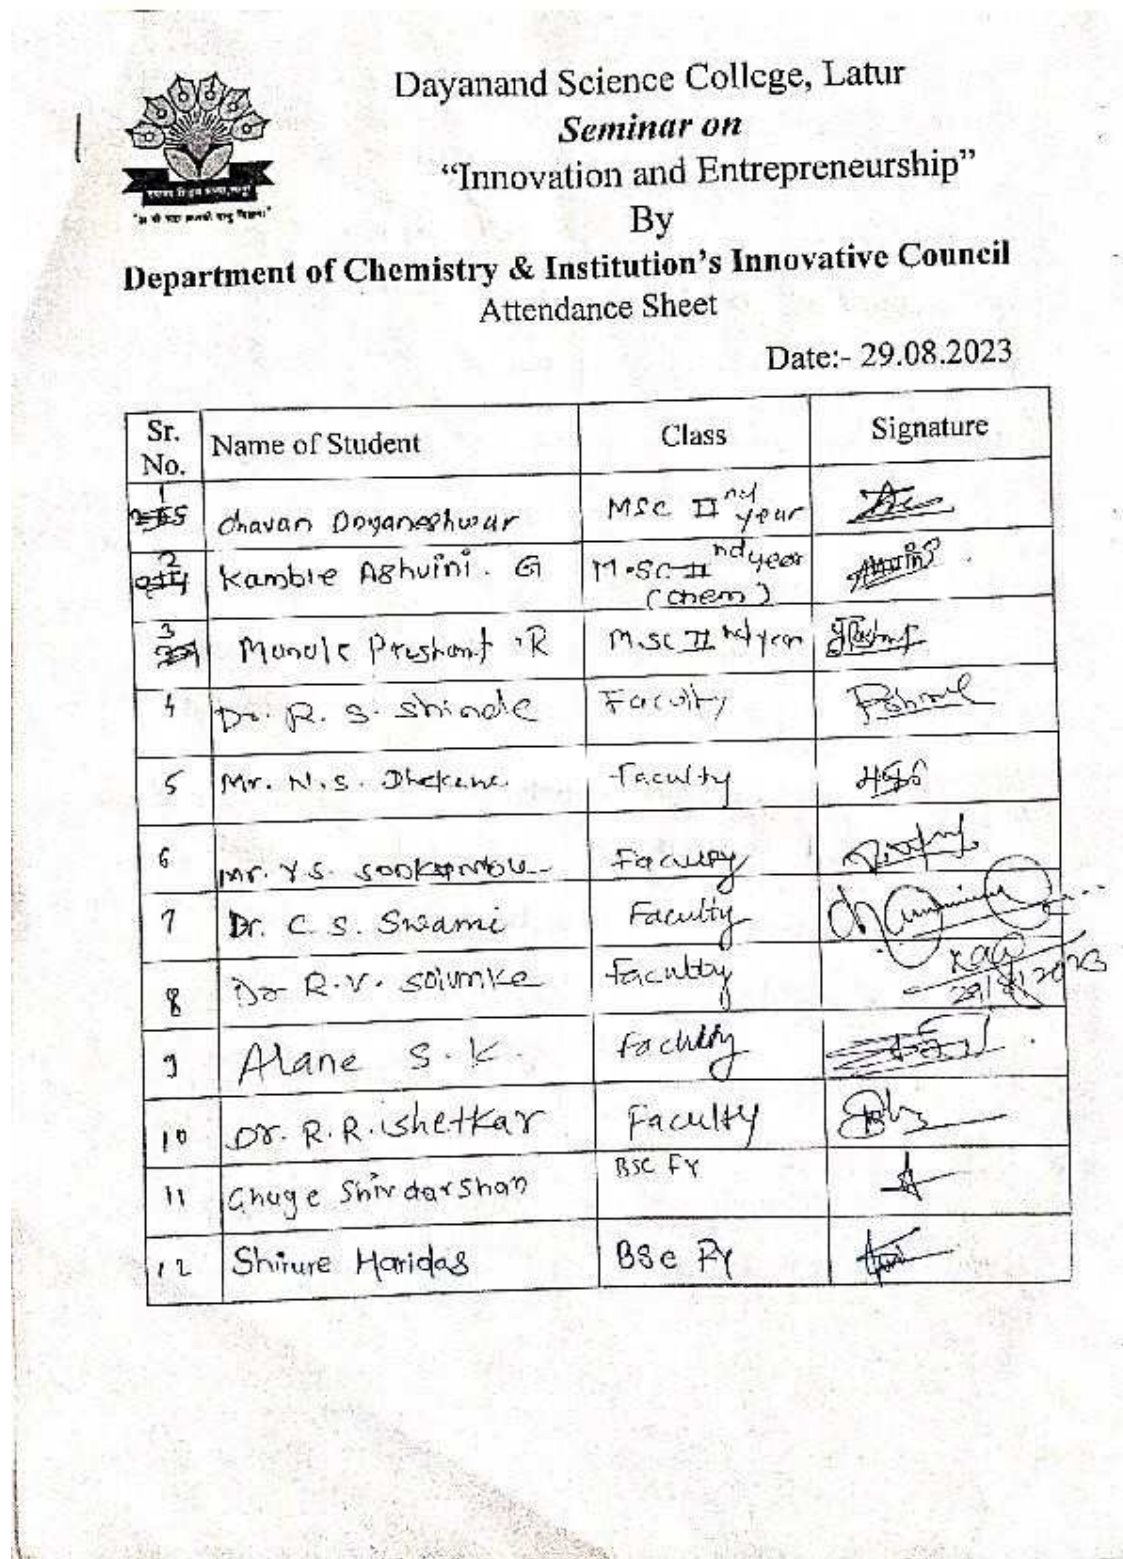 1
Dayanand Science College, Latur
Seminar on
“Innovation and Entrepreneurship”
By
Department of Chemistry & Institution’s Innovative Council
Attendance Sheet
Date:- 29.08.2023
Sr. No. Name of Student Class Signature
1 Chavan Dnyaneshwar MSC II nd year
2 Kamble Ashvini. G M.SC II nd year (chem)
3 Prashant .R M.SC II nd year
4 Dr. R. S. Shinde Faculty
5 Mr. N.S. Faculty
6 Mr. Y.S. Faculty
7 Dr. C. S. Swami Faculty
8 Dr R.V. Faculty 29/8/2023
9 Alane S.K. Faculty
10 Dr. R.R. Shetkar Faculty
11 Ghuge Shivdarshan BSC FY
12 Shirure Haridas BSc FY